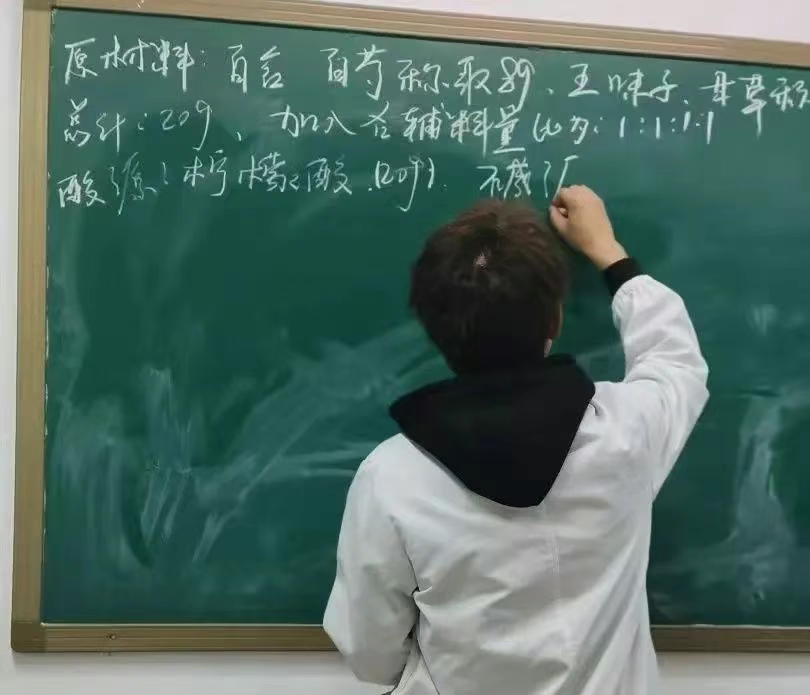 原材料：百合 白芍称取8g、五味子、甘草称
总计：20g、加入各辅料量比为：1：1：1：1
酸源：柠檬酸（20g）. 碱